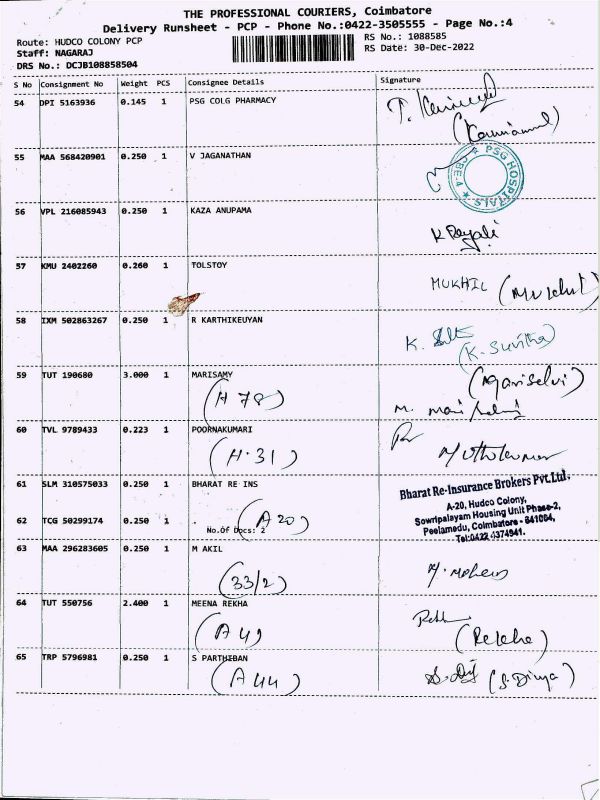 THE PROFESSIONAL COURIERS, Coimbatore
Delivery Runsheet - PCP - Phone No.:0422-3505555 - Page No.:4
Route: HUDCO COLONY PCP
Staff: NAGARAJ
DRS No.: DCJB108858504
RS No.: 1088585
RS Date: 30-Dec-2022
S No Consignment No Weight PCS Consignee Details Signature
54 DPI 5163936 0.145 1 PSG COLG PHARMACY
55 MAA 568420901 0.250 1 V JAGANATHAN
PSG HOSPITALS ★ CBE-4 ★
56 VPL 216085943 0.250 1 KAZA ANUPAMA
57 KMU 2402260 0.260 1 TOLSTOY
MUKHIL
58 IXM 502863267 0.250 1 R KARTHIKEUYAN
(K. Suvitha)
59 TUT 190680 3.000 1 MARISAMY
(A 78)
(Mariselvi)
60 TVL 9789433 0.223 1 POORNAKUMARI
(H-31)
Muthukumar
61 SLM 310575033 0.250 1 BHARAT RE INS
Bharat Re-Insurance Brokers Pvt.Ltd.
A-20, Hudco Colony,
Sowripalayam Housing Unit Phase-2,
Peelamedu, Coimbatore - 641004,
Tel:0422 4374941.
62 TCG 50299174 0.250 1 .
No.Of Docs: 2
(A 20)
63 MAA 296283605 0.250 1 M AKIL
(33/2)
64 TUT 550756 2.400 1 MEENA REKHA
(A 49)
(Rekha)
65 TRP 5796981 0.250 1 S PARTHIBAN
(A 44)
(S. Divya)